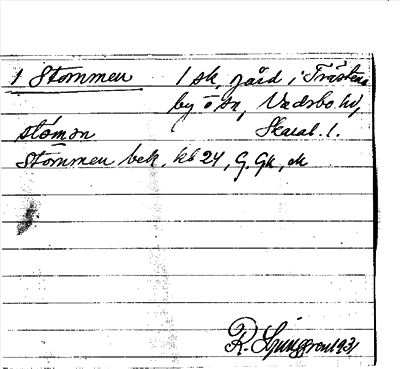 1 Stommen 1 sk, gård i Trästena
by o sn, Vadsbo hd,
stómən Skarab. l.
Stommen bek, kb 24, G. Gk, M
R. Ljunggren 1931